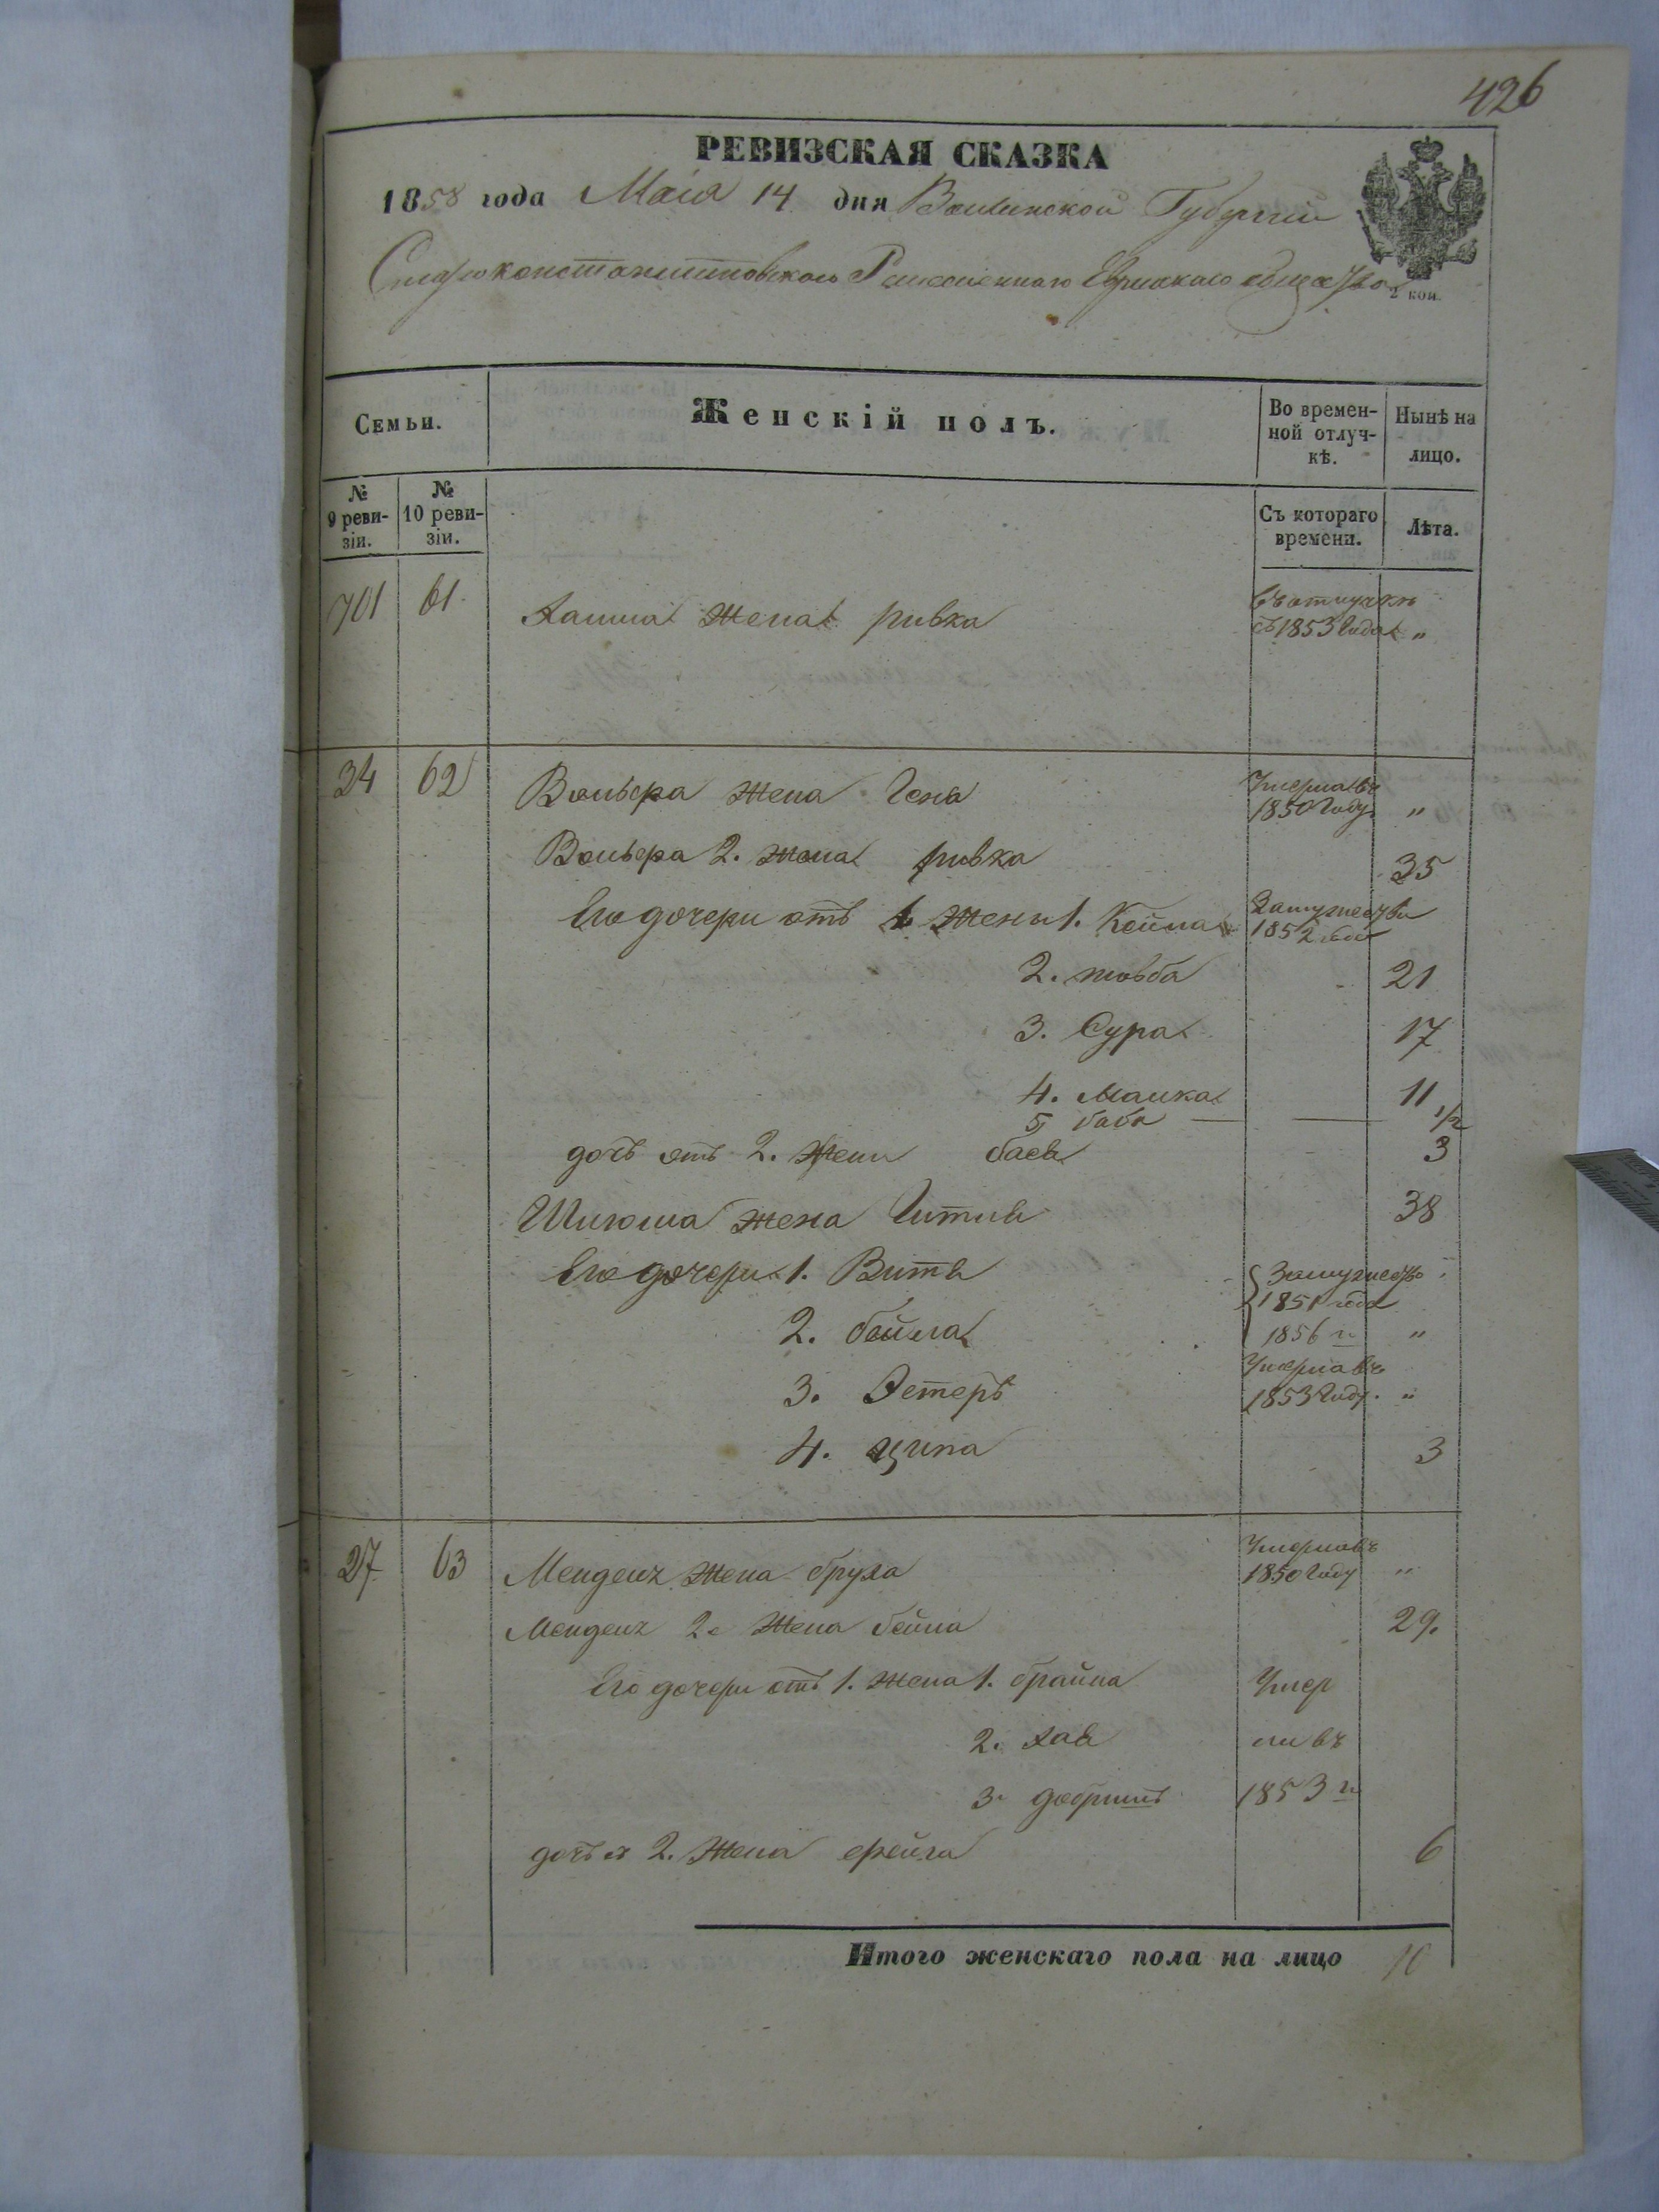 426
РЕВИЗСКАЯ СКАЗКА
1858 года Маія 14 дня Волынской Губерніи
Староконстантиновского Еврейскаго общества
2 коп.
Семьи. Женскій полъ. Во времен-ной отлуч-кѣ. Нынѣ на лицо.
№ 9 реви-зіи. № 10 реви-зіи. Съ котораго времени. Лѣта.
701 61 жена ривка въ отлучкѣ
съ 1853 года "
34 62 Вольфа жена Геня Умерла въ
1850 Году "
Вольфа 2. жена ривка 35
Его дочери отъ 1 жены 1. Замужество
1852 года
2. товба 21
3. Сура 17
4. Малка 11
5 баба 1/2
дочь отъ 2. жены бася 3
Шлиома жена Гитля 38
Его дочери 1. Витя Замужество
1851 года
2. бейла 1856 г. "
3. Эстеръ Умерла въ
1853 Году. "
4. ципа 3
27 63 Мендель жена бруха Умерла въ
1850 Году "
Мендель 2. жена бейла 29.
Его дочери отъ 1. жена 1. брайна Умер
2. хая ли въ
3. добришъ 1853 г.
дочь 2. жена фейга 6
Итого женскаго пола на лицо 10